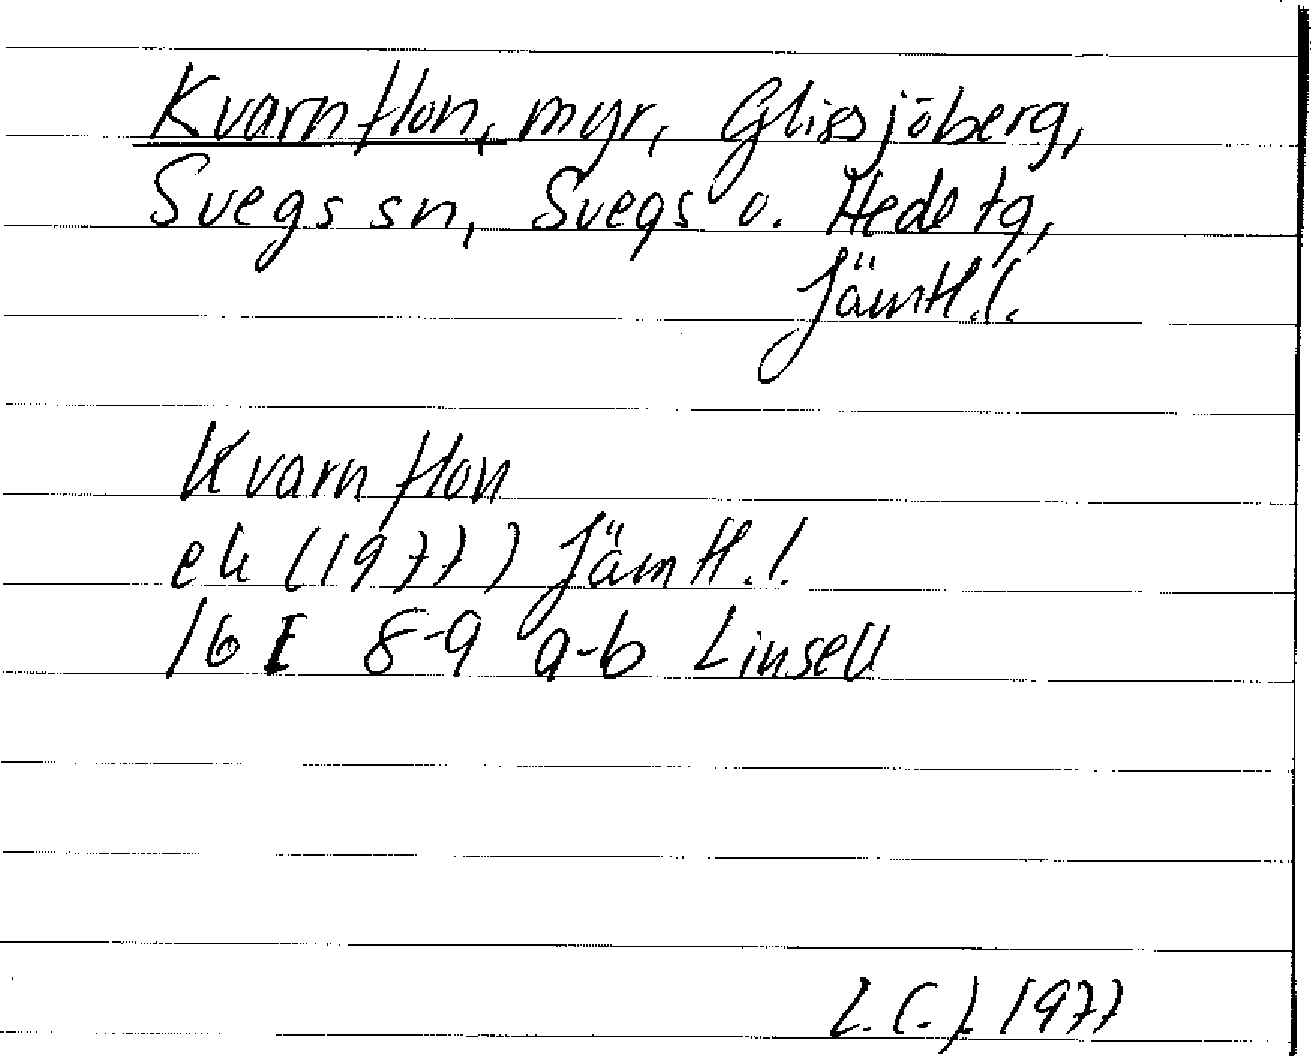 Kvarnflon, myr, Glissjöberg,
Svegs sn, Svegs o. Hede tg,
Jämtl.l.
Kvarnflon
ek (1977) Jämtl.l.
16 E 8-9 a-b Linsell
L.C.J. 1977